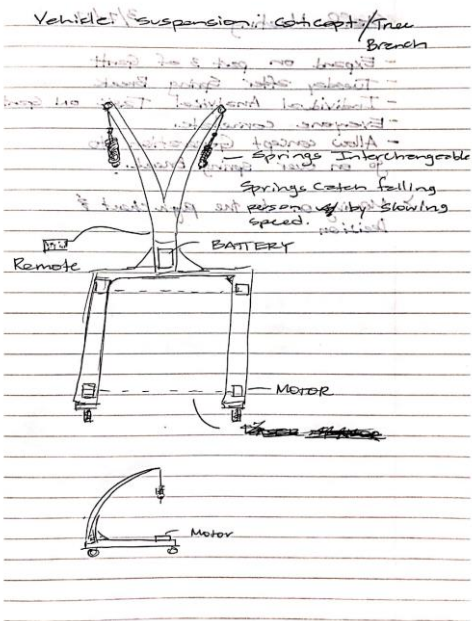 Vehicle suspension concept/Tree
Branch
Springs Interchangeable
Springs Catch falling
person by slowing
speed.
BATTERY
Remote
MOTOR
Motor